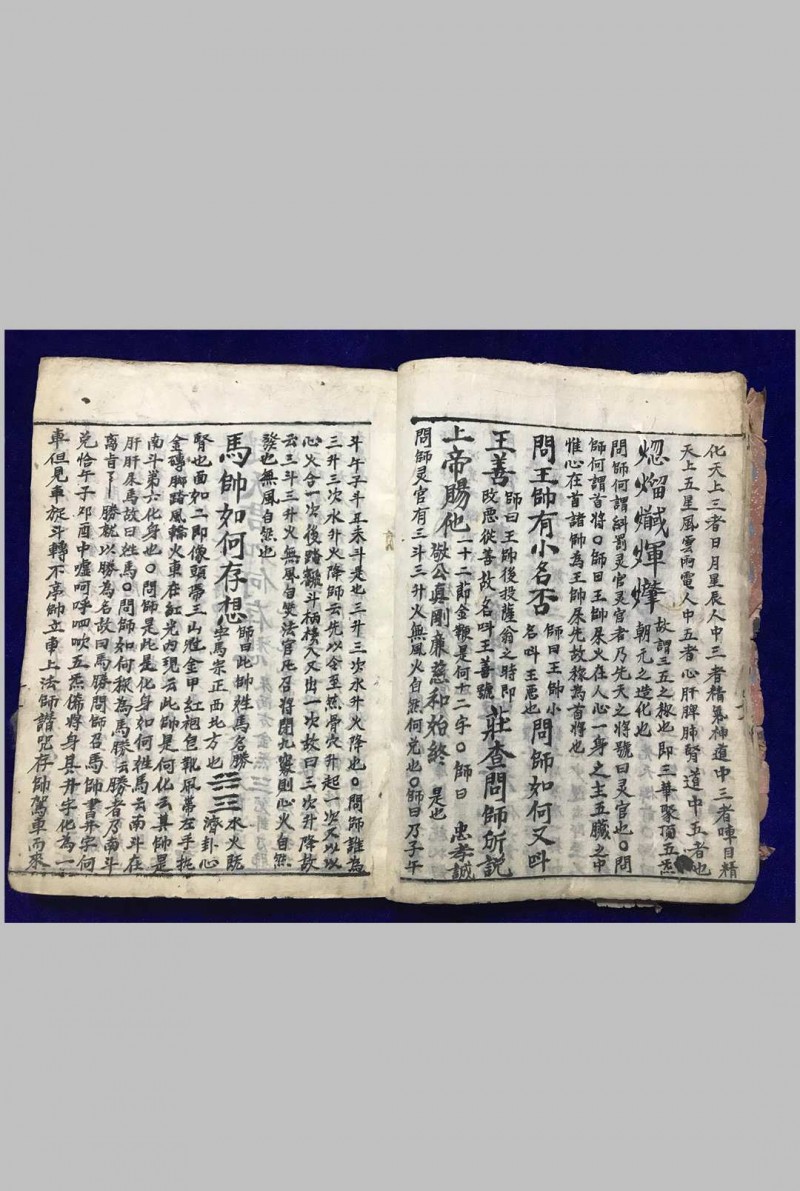 化天上三者日月星辰人中三者精氣神道中三者啤目精
天上五星風雲雨電人中五者心肝脾肺腎道中五者也
朝元之造化也
故謂三五之教也即三華聚頂五炁
問師何謂糾罰灵官灵官者乃先天之將號曰灵官也〇問
師何謂首將〇師曰王帥屎火在人心一身之主五臟之中
惟心在首諸帥為王帥屎先故稱為首將也
問王帥有小名否
師曰王帥小
名叫王惡也
問師如何又叫
王善
師曰王帥後投薩翁之時即
改惡從善故名叫王善號
莊查問師所說
上帝賜他
一十二節金鞭是何十二字〇師曰
敬公眞剛廉慈和始終
忠孝誠
是也
問師灵官有三斗三升火無風火自然何兑也〇師曰乃子午
斗午子斗丑未斗是也三升三次水升火降也〇問師誰為
三升三次水升火降師云先以令至炁骨穴升起一次又以以
心火合一次後踏罡斗柄撗入又出一次故曰三次升降故
云三斗三升火無風自癸法官凡召將閉九竅則心火自然
發也無風自然也
馬帥如何存想
師曰此帥姓馬名勝
字馬宗正西北方也
水火既
濟卦心
腎也面如二郎像頭帶三山冠金甲紅袍皂靴風帶左手托
金磚脚踏風輪火車在紅光内現云此帥是何化云其帥是
南斗第六化身也〇問師是此是化身如何姓馬云南斗在
肝肝屎馬故曰姓馬〇問師如何稱為馬勝云勝者乃南斗
离肓了一勝就以勝為名故曰馬勝問師召馬帥書丼字何
兑恰午子卯酉中嘘呵呼呬吹五炁俻將身具丼字化為一
車但見車旋斗轉不亭帥立車上法師諎咒存帥駕車而來